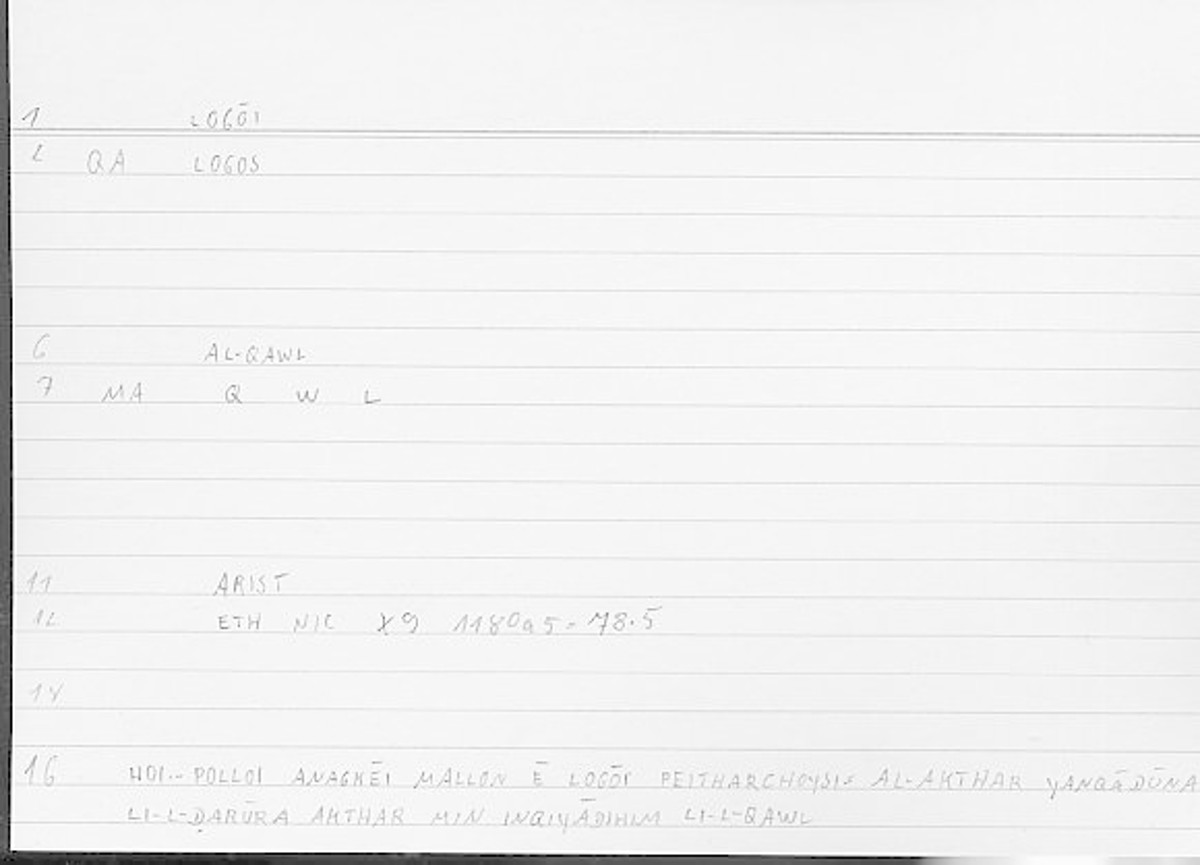 1 LOGŌI
2 QA LOGOS
6 AL-QAWL
7 MA Q W L
11 ARIST
12 ETH NIC X9 1180a5 = 78.5
14
16 HOI.. POLLOI ANAGKĒI MALLON Ē LOGŌI PEITHARCHOYSI= AL-AKTHAR YANQĀDŪNA
LI-L-ḌARŪRA AKTHAR MIN INQIYĀDIHIM LI-L-QAWL